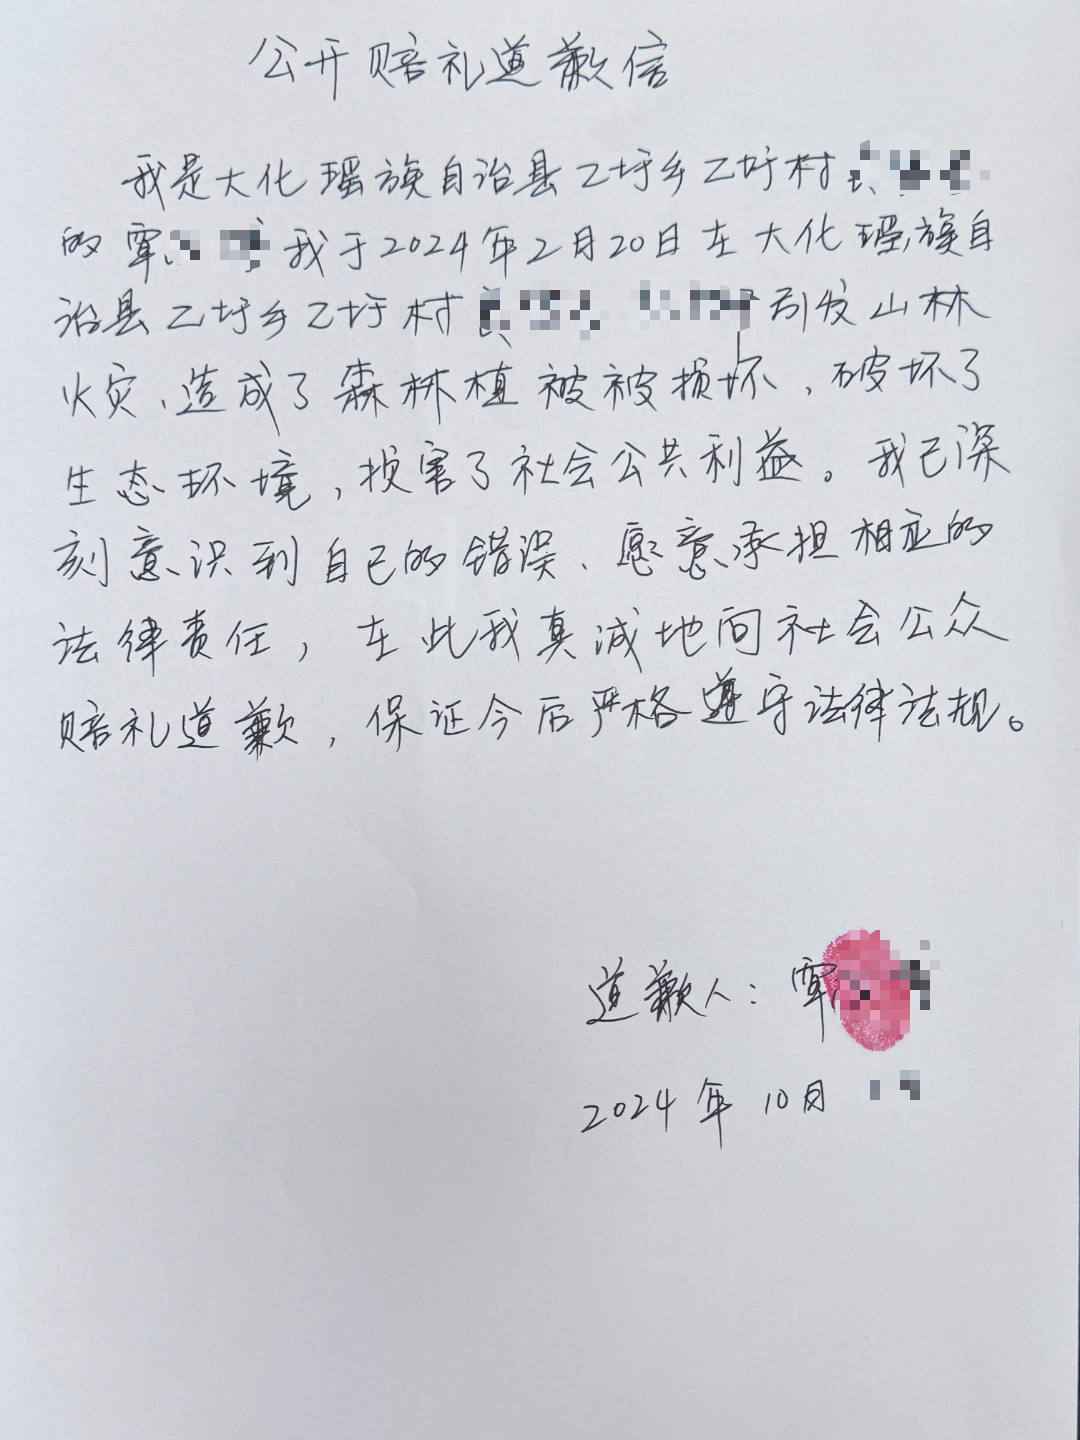 公开赔礼道歉信
我是大化瑶族自治县乙圩乡乙圩村
的覃 我于2024年2月20日在大化瑶族自
治县乙圩乡乙圩村 引发山林
火灾、造成了森林植被被损坏，破坏了
生态环境，损害了社会公共利益。我已深
刻意识到自己的错误、愿意承担相应的
法律责任，在此我真诚地向社会公众
赔礼道歉，保证今后严格遵守法律法规。
道歉人：覃
2024年10月